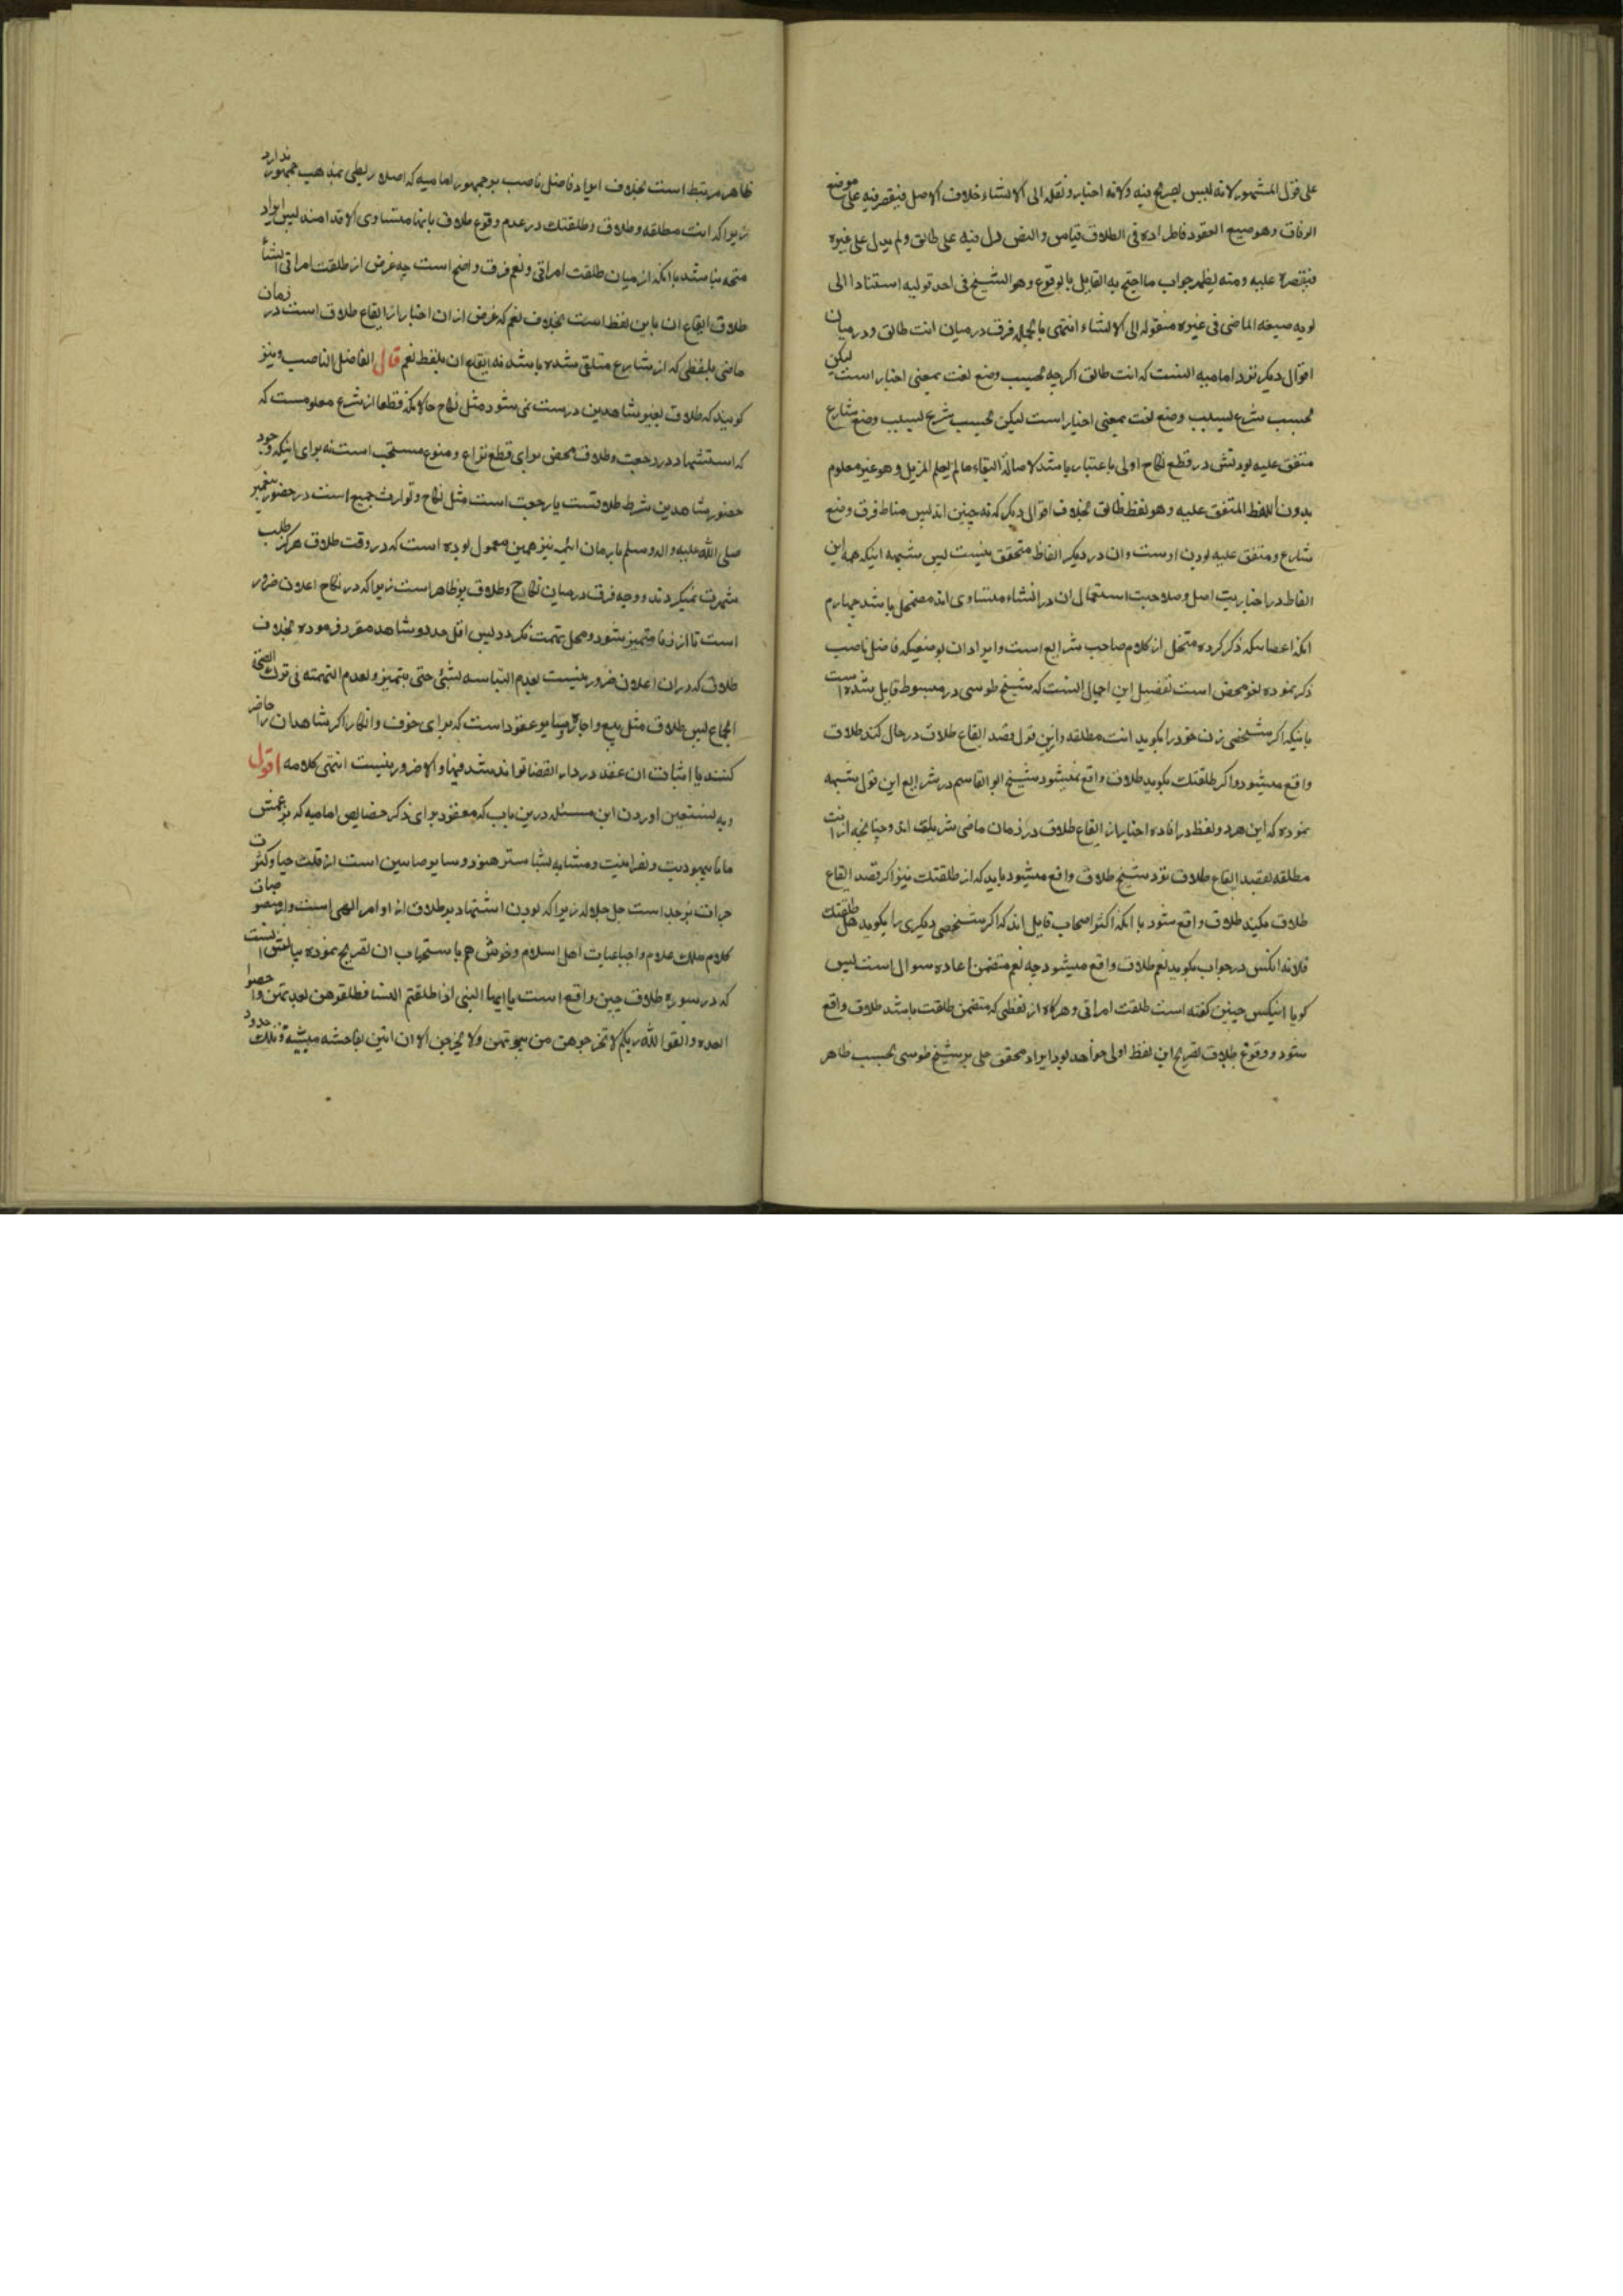 علی قول المشهور لانه لیس بصریح فیه ولانه اخبار و نقله الی الانشاء خلاف الاصل فیقتصر فیه علی موضع
الوفاق وهو صیغ العقود فاطراده فی الطلاق قیاس والنص دل فیه علی طالق ولم یدل علی غیره
فیقتصر علیه ومنه یظهر جواب ما احتج به القایل بالوقوع وهو الشیخ فی احد قولیه استنادا الی
صیغه الماضی فی غیره منقوله الی الانشاء انتهی بالجمله فرق درمیان انت طالق و درمیان
اقوال دیکر نزد امامیه انست که انت طالق اکرچه بحسب وضع لغت بمعنی اخبار است لیکن
بحسب شرع بسبب وضع لغت بمعنی اخبار است لیکن بحسب شرع بسبب وضع شارع
متفق علیه بودنش در قطع نکاح اولی باعتبار باشد لاصالة البقاء مالم یعلم المزیل وهو غیر معلوم
بدون اللفظ المتفق علیه وهو لفظ طالق بخلاف اقوال دیکر که نه چنین اند پس مناط فرق وضع
شارع و متفق علیه بودن اوست وان در دیکر الفاظ متحقق نیست پس شبهه اینکه همه این
الفاظ در اخباریت اصل و صلاحیت استعمال ان در انشاء متساوی اند مضمحل باشد چهارم
انکه اعضاییکه ذکر کرده منتحل از کلام صاحب شرایع است وایراد ان بوضعیکه فاضل ناصب
ذکر نموده لغو محض است تفصیل این اجمال انست که شیخ طوسی در مبسوط قایل شده است
باینکه اکر شخصی زن خود را بکوید انت مطلقه واین قول بقصد ایقاع طلاق در حال کند طلاق
واقع میشود واکر طلقتک بکوید طلاق واقع نمیشود شیخ ابو القاسم در شرایع این قول شبهه
نموده که این هر دو لفظ در افاده اخبار از ایقاع طلاق در زمان ماضی شریک اند و چنانچه از انت
مطلقه بقصد ایقاع طلاق نزد شیخ طلاق واقع میشود باید که از طلقتک نیز اکر قصد ایقاع
طلاق بکند طلاق واقع شود با انکه اکثر اصحاب قایل اند که اکر شخصی دیکری را بکوید هل طلقتک
فلانه انکس در جواب بکوید نعم طلاق واقع میشود چه نعم متضمن اعاده سوال است پس
کویا انیکس چنین کفته است طلقت امراتی و هرکاه از لفظی که متضمن طلقت باشد طلاق واقع
شود و وقوع طلاق بصریح این لفظ اولی خواهد بود ایراد محقق حلی بر شیخ طوسی بحسب ظاهر
ظاهر مرتبط است بخلاف ایراد فاضل ناصب بر جمهور امامیه که اصلا ربطی بمذهب جمهور ندارد
زیرا که انت مطلقه و طلاق و طلقتک در عدم وقوع طلاق بانها متساوی الاقدامند پس ایراد
متجه نباشد با انکه از میان طلقت امراتی و نعم فرق واضح است چه غرض از طلقت امراتی انشأ
طلاق ایقاع ان باین لفظ است بخلاف نعم که غرض از ان اخبار از ایقاع طلاق است در زمان
ماضی بلفظی که از شارع متلقی شده باشد نه ایقاع ان بلفظ نعم قال الفاضل الناصب ونیز
کویند که طلاق بغیر شاهدین درست نمی شود مثل نکاح حالانکه قطعا از شرع معلومست که
که استشهاد در رجعت و طلاق محض برای قطع نزاع و منوع مستحب است نه برای اینکه وجود
حضور شاهدین شرط طلاقست یا رجعت است مثل نکاح و توارث جمیع است در حضور پیغمبر
صلی الله علیه واله وسلم یا زمان ائمه نیز همین معمول بوده است که در وقت طلاق هرکز طلب
شهرت نمیکردند و وجه فرق درمیان نکاح و طلاق پر ظاهر است زیرا که در نکاح اعلان ضرور
است تا از زنا متمیز شود و محل تهمت نکردد پس اقل حد دو شاهد مقرر فرموده بخلاف
طلاق که در ان اعلان ضرور نیست لعدم التباسه بشئ حتی یتمیز ولعدم التهمته فی ترک الصحبة
الجماع پس طلاق مثل بیع و اجاره و سایر عقود است که برای خوف و انکار اکر شاهدان را حاضر
کنند یا اثبات ان عقد در دار القضا توانند شد فبها والا ضرور نیست انتهی کلامه اقول
وبه نستعین اوردن این مسئله درین باب که معقود برای ذکر خصایص امامیه که بزعمش
مانا بیهودیت و نصرانیت و مشابه بشاستر هنود و سایر صابین است از قلت حیا و کثرت
جرات بر خداست جل جلاله زیرا که بودن استشهاد بر طلاق از اوامر الهی است و از منصوصات
کلام ملک علام واجماعیات اهل اسلام وخودش هم باستحباب ان تصریح نموده بیانش انست
که در سوره طلاق چنین واقع است یا ایها النبی اذا طلقتم النساء فطلقوهن لعدتهن واحصوا
العده واتقوا الله ربکم لا تخرجوهن من بیوتهن ولا یخرجن الا ان یاتین بفاحشه مبینه وتلک حدود